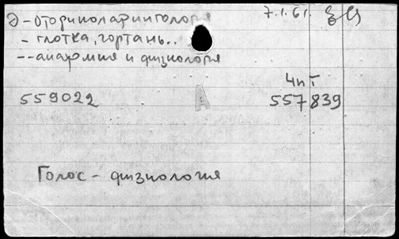 Э - оториноларингология 7.1.61.
- глотка, гортань..
-- анатомия и физиология
Чит
559022 А 557839
Голос - физиология